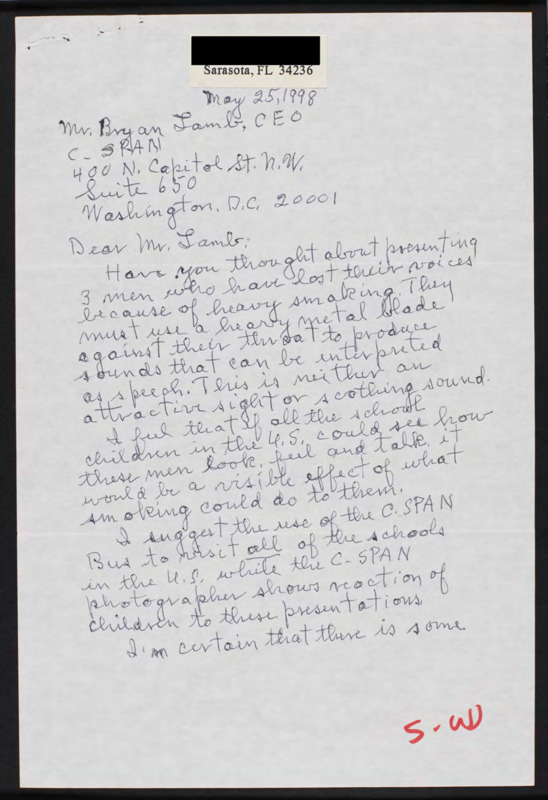 Sarasota, FL 34236
May 25, 1998
Mr. Bryan Lamb, CEO
C-SPAN
400 N. Capitol St. N.W.
Suite 650
Washington, D.C. 20001
Dear Mr. Lamb:
Have you thought about presenting
3 men who have lost their voices
because of heavy smoking. They
must use a heavy metal blade
against their throat to produce
sounds that can be interpreted
as speech. This is neither an
attractive sight or soothing sound.
I feel that if all the school
children in the U.S. could see how
these men look, feel and talk, it
would be a visible effect of what
smoking could do to them.
I suggest the use of the C-SPAN
Bus to visit all of the schools
in the U.S. while the C-SPAN
photographer shows reaction of
children to these presentations
I'm certain that there is some
S-W